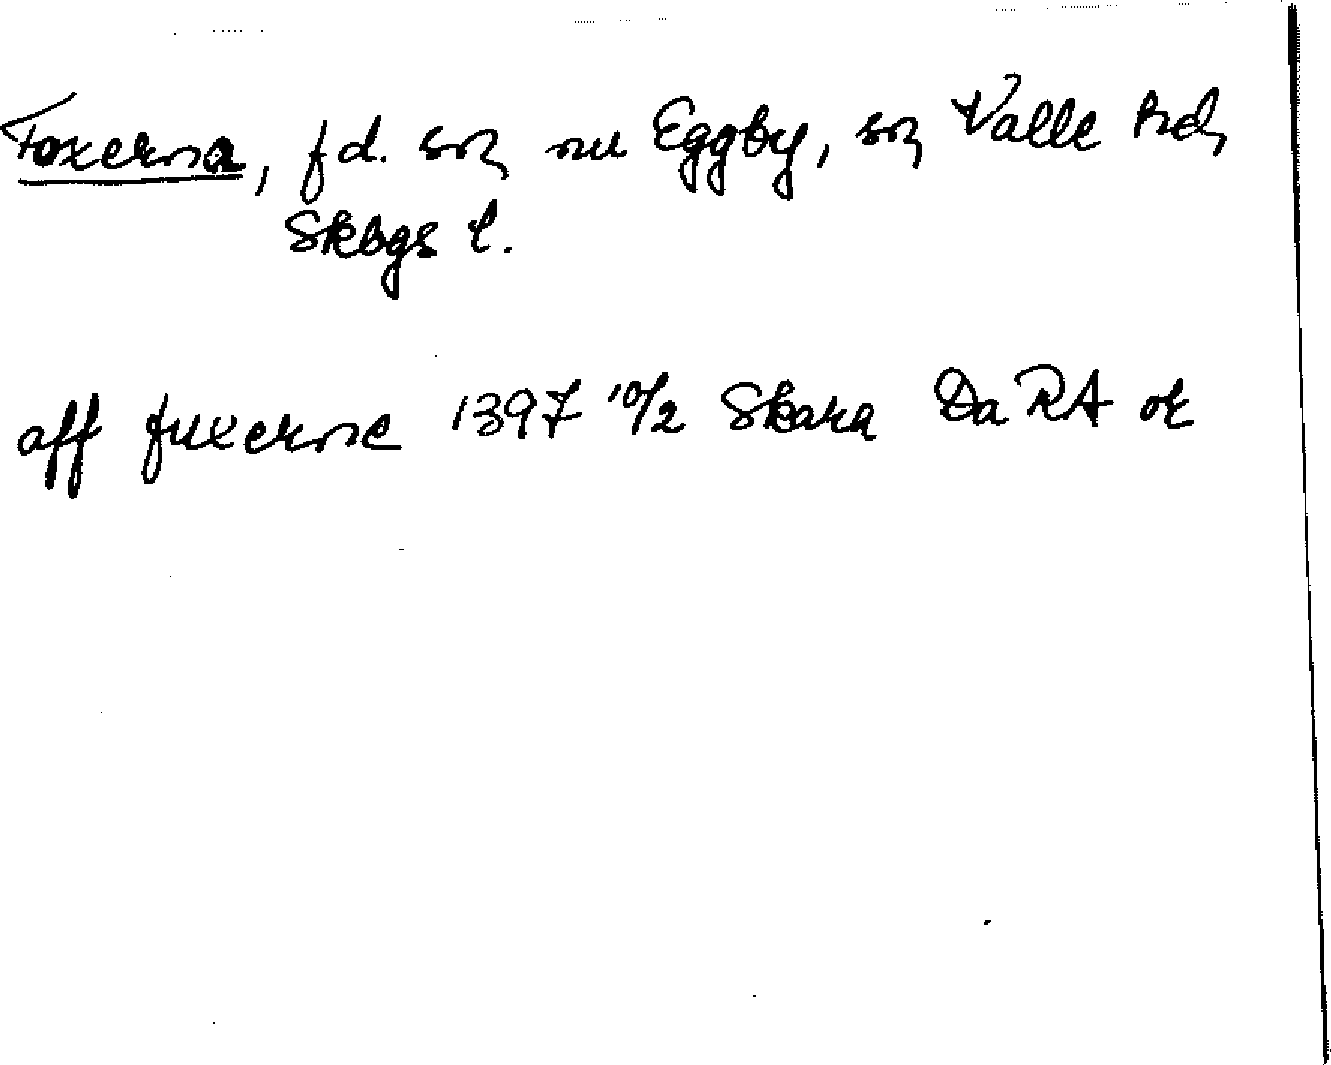 Foxerna, f d. sn nu Eggby, sn Valle hd,
Skbgs l.
aff fuxerne 1397 10/2 Skara Da RA or